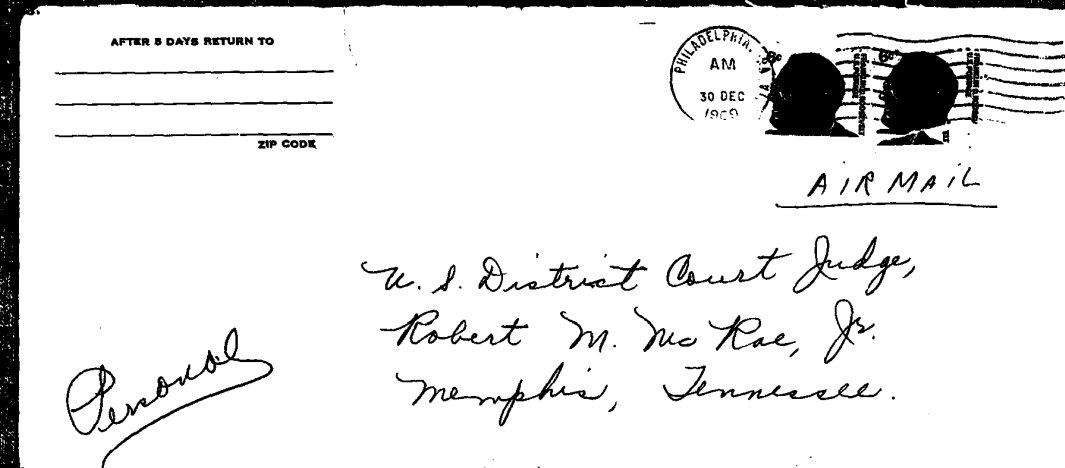 AFTER 5 DAYS RETURN TO
ZIP CODE
PHILADELPHIA, PA
AM
30 DEC
1969
6c
6c
AIR MAIL
U. S. District Court Judge,
Robert M. Mc Rae, Jr.
Memphis, Tennessee.
Personal